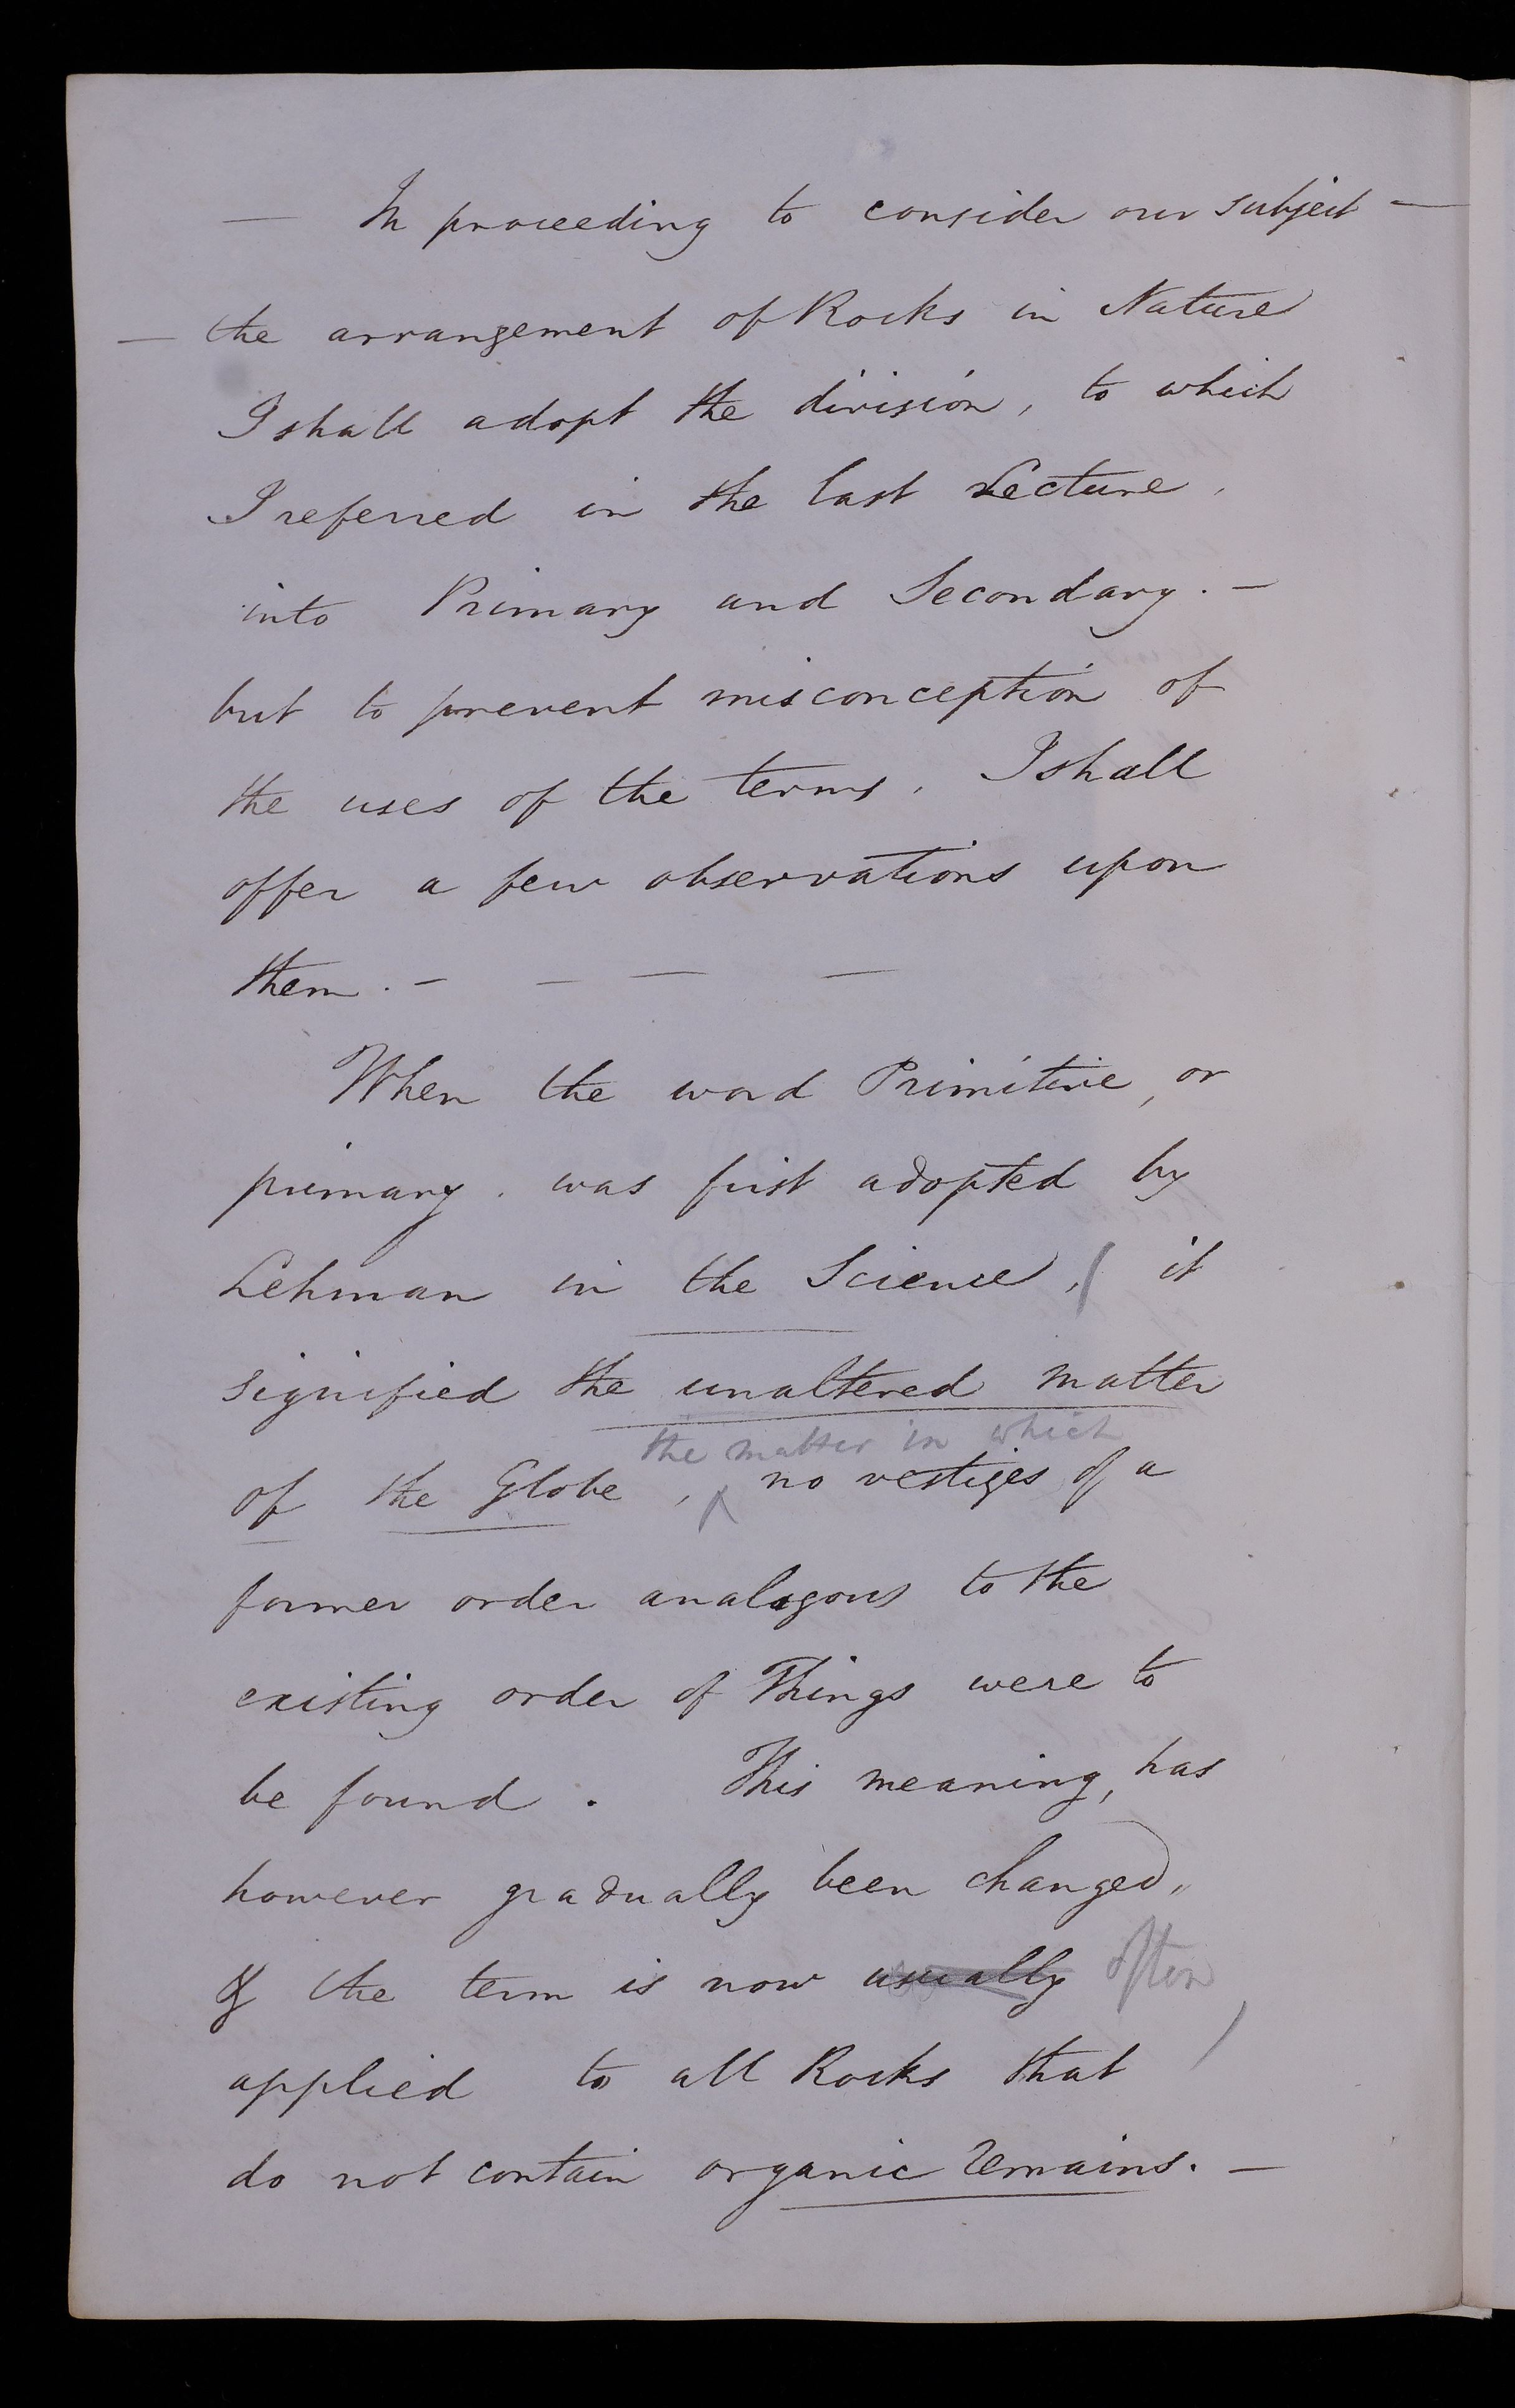 — In proceeding to consider our subject —
— the arrangement of Rocks in Nature
I shall adopt the division, to which
I referred in the last Lecture,
into Primary and Secondary. —
but to prevent misconception of
the uses of the terms, I shall
offer a few observations upon
them. — — — —
When the word Primitive, or
primary. was first adopted by
Lehman in the Science, ( it
signified the unaltered matter
the matter in which
of the Globe, ^ no vestiges of a
former order analogous to the
existing order of Things were to
be found. This meaning, has
however gradually been changed,,
& the term is now usually often
applied to all Rocks that
do not contain organic remains. —